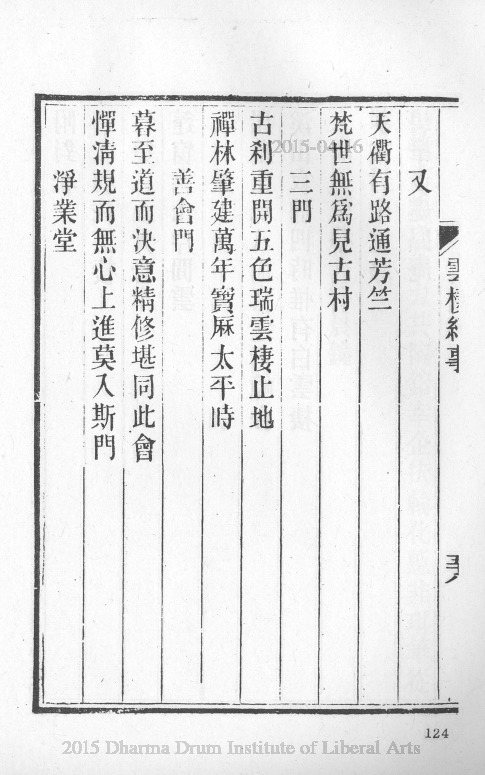 雲棲紀事
又
天衢有路通芳竺
梵世無爲見古村
三門
古刹重開五色瑞雲棲止地
禪林肇建萬年寶麻太平時
善會門
慕至道而决意精修堪同此會
憚淸規而無心上進莫入斯門
淨業堂
124
2015-04-16
2015 Dharma Drum Institute of Liberal Arts